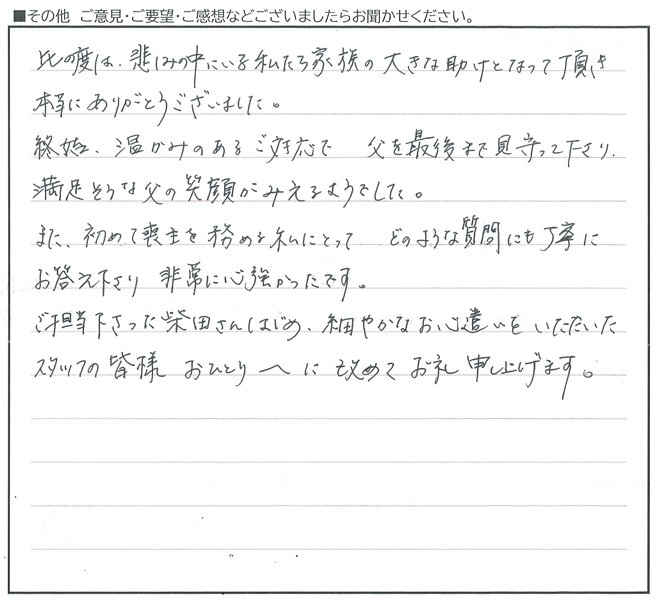 ■その他 ご意見・ご要望・ご感想などございましたらお聞かせください。
此の度は、悲しみの中にいる私たち家族の大きな助けとなって頂き
本当にありがとうございました。
終始、温かみのあるご対応で 父を最後まで見守って下さり、
満足そうな父の笑顔がみえるようでした。
また、初めて喪主を務める私にとって どのような質問にも丁寧に
お答え下さり 非常に心強かったです。
ご担当下さった柴田さんはじめ、細やかなお心遣いをいただいた
スタッフの皆様 おひとりへに改めてお礼申し上げます。